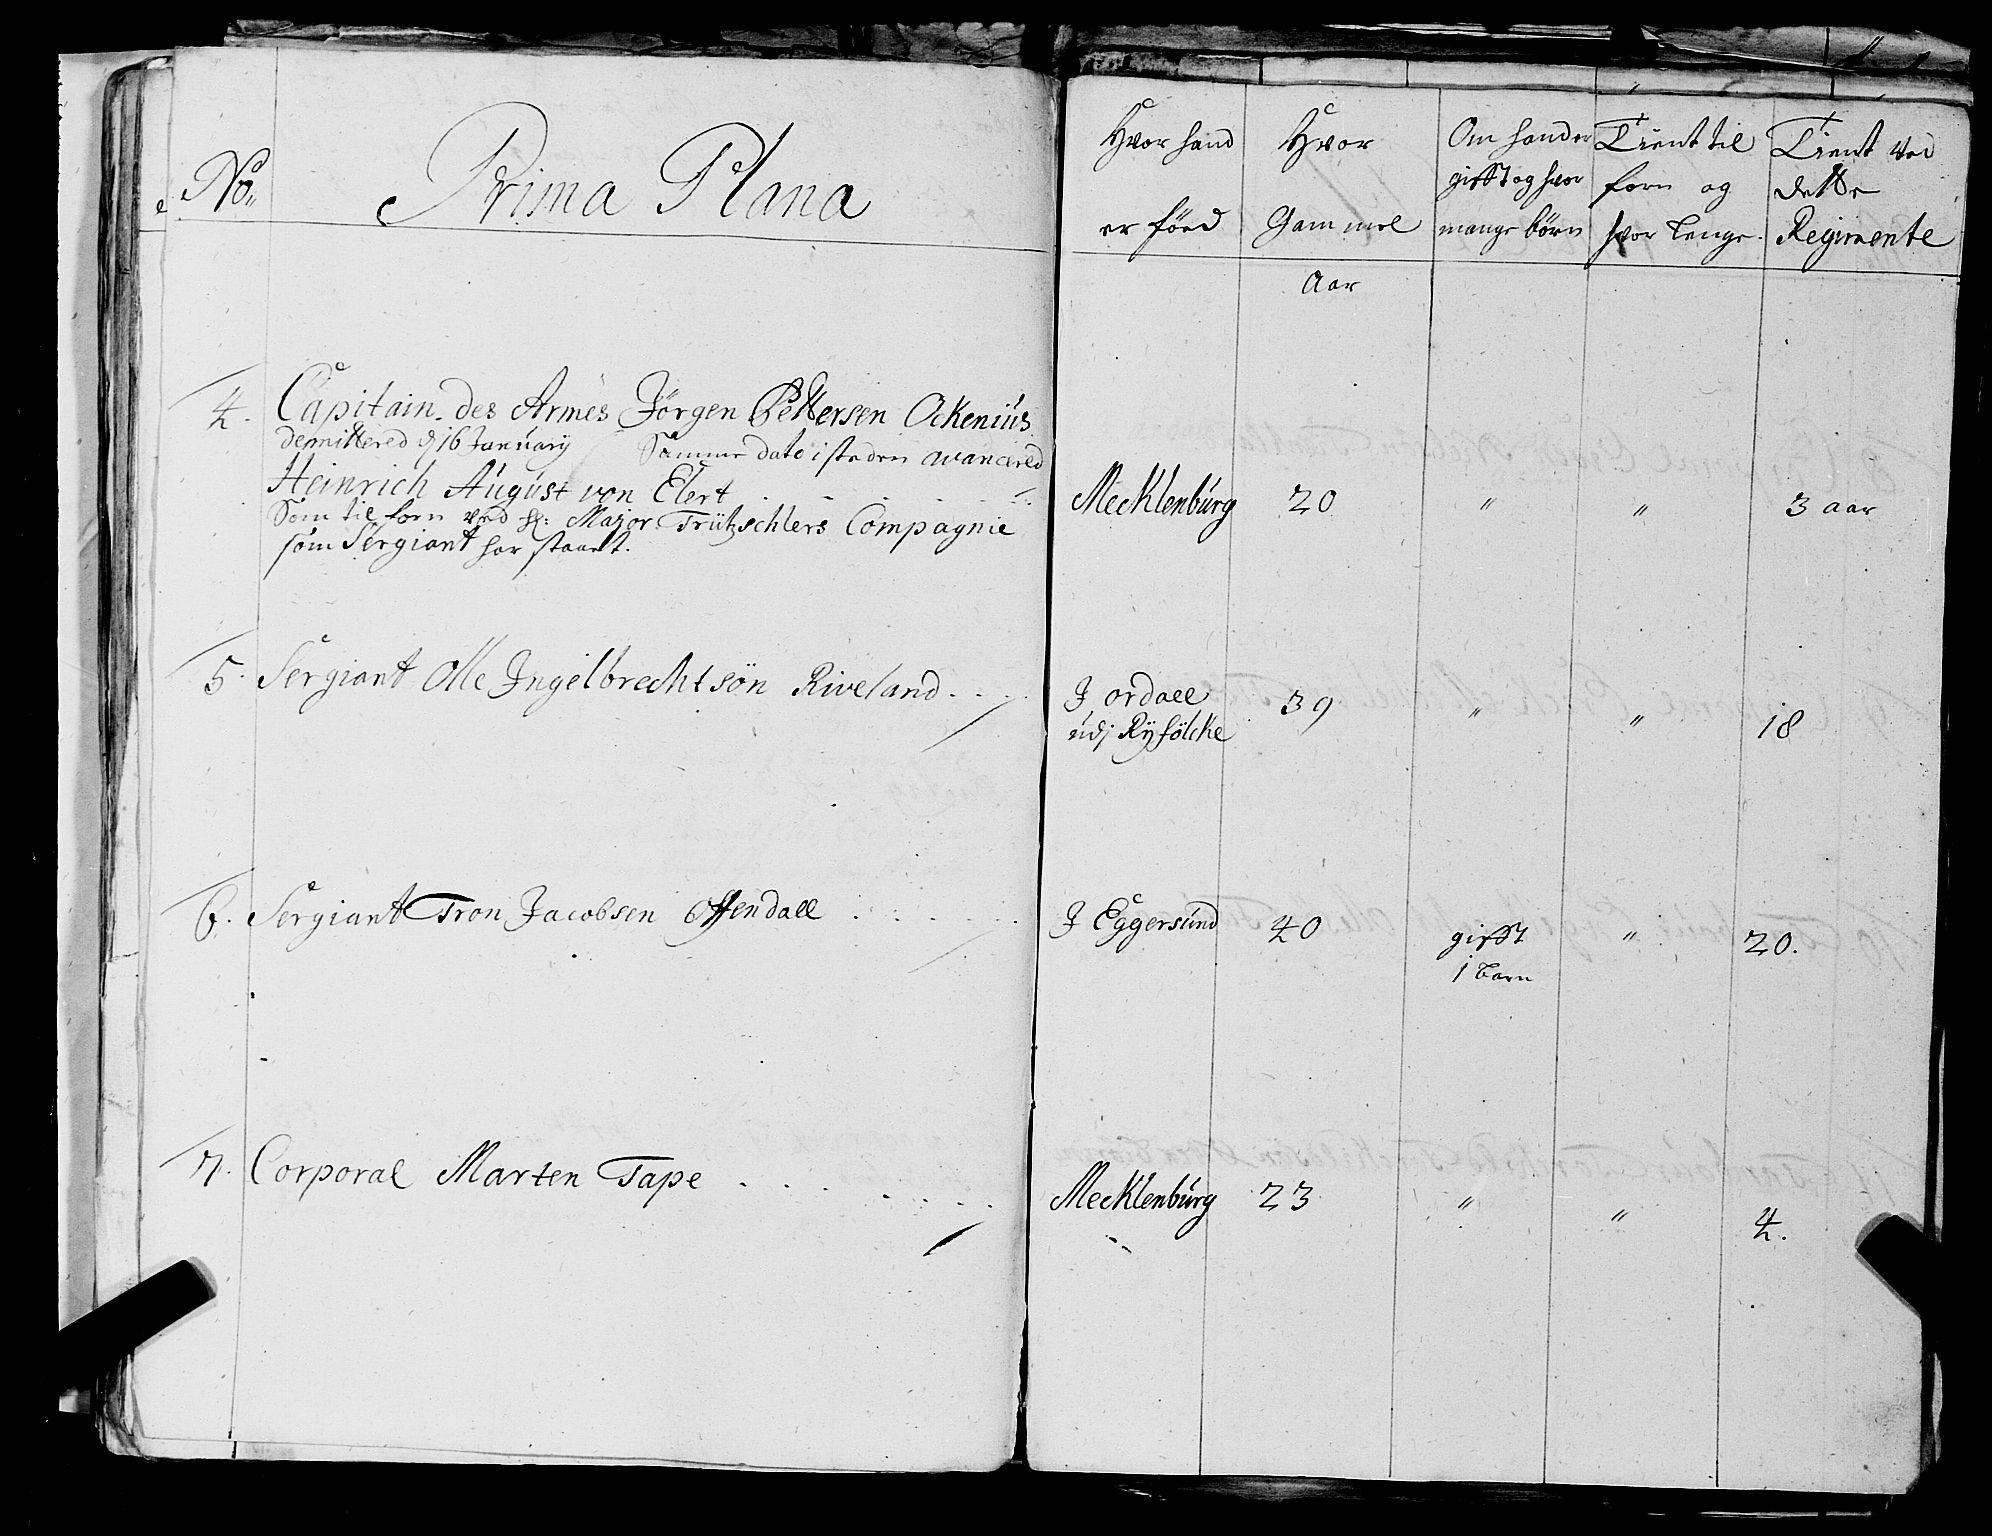 No. Prima Plana
Hvor hand er föed
Hvor Gammel
Om hand er gifft og hvor mange börn
Tient til forn og hvor lenge.
Tient ved dette Regimente
Aar
4. Capitain des Armes Jörgen Pettersen Ockenius
demittered d 16 January Samme dato i steden avancered
Heinrich August von Elert . . . Mecklenburg 20 " " 3 aar
Som til forn ved H: Major Trützschlers Compagnie
som Sergiant har staaet.
5. Sergiant Olle Ingelbrechtsön Riveland . . . J ordall 39 " " 18
udj Ryfölcke
6. Sergiant Tron Jacobsen Offendall . . . . . . J Eggersund 40 gifft " 20.
1 barn
7. Corporal Marten Tape . . . . . . . Mecklenburg 23 " " 4.